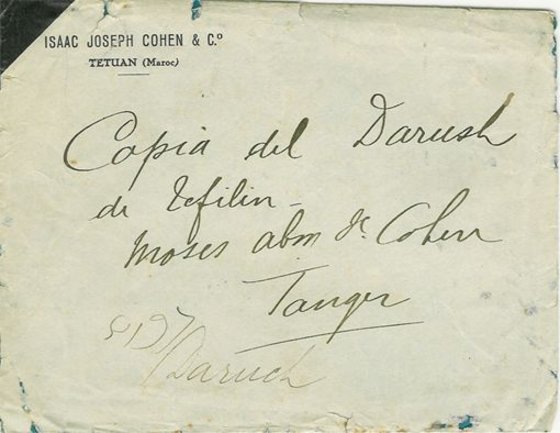 ISAAC JOSEPH COHEN & C.º
TETUAN (Maroc)
Copia del Darush
de Tefilin_
Moses abm Cohen
Tanger
Daruch